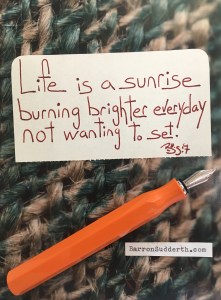 Life is a sunrise
burning brighter everyday
not wanting to set!
BarronSudderth.com